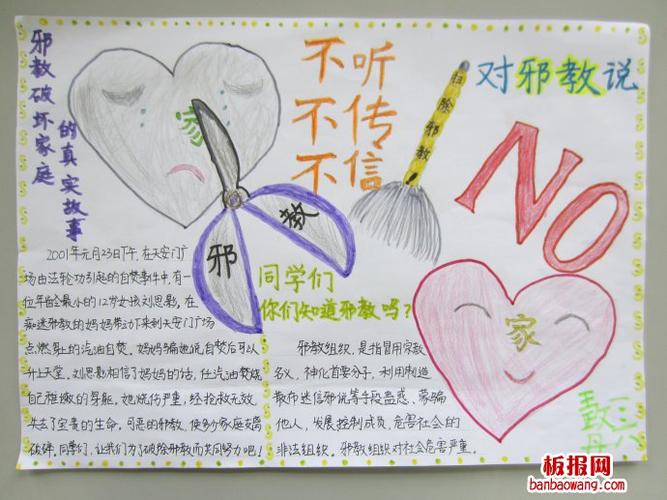 邪教破坏家庭
的真实故事
家
邪
教
不听
不传
不信
扫除邪教!
对邪教说
NO
2001年元月23日下午,在天安门广
场由法轮功引起的自焚事件中,有一
位年龄最小的12岁女孩刘思影,在
痴迷邪教的妈妈带动下来到天安门广场
点燃身上的汽油自焚。妈妈骗她说自焚后可以
升上天堂。刘思影相信了妈妈的话,任汽油焚烧
自己稚嫩的身躯,她烧伤严重,经抢救无效,
失去了宝贵的生命。可恶的邪教,使多少家庭支离
破碎,同学们,让我们为了破除邪教而共同努力吧!
同学们
你们知道邪教吗?
邪教组织,是指冒用宗教
名义,神化首要分子,利用制造
散布迷信邪说等手段蛊惑、蒙骗
他人,发展控制成员,危害社会的
非法组织。邪教组织对社会危害严重。
家
三八
板报网
banbaowang.com